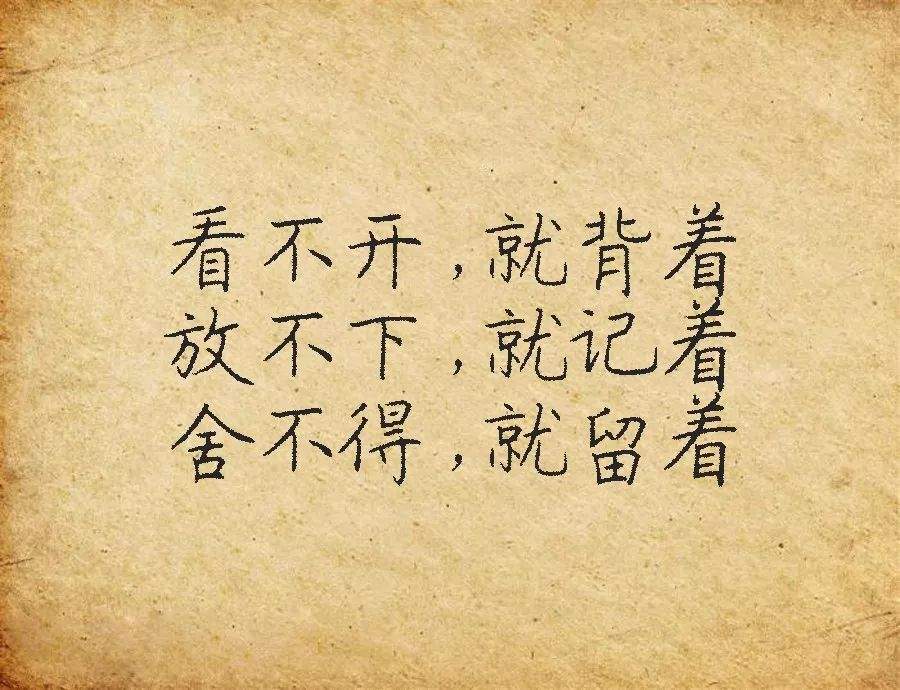 看不开,就背着
放不下,就记着
舍不得,就留着